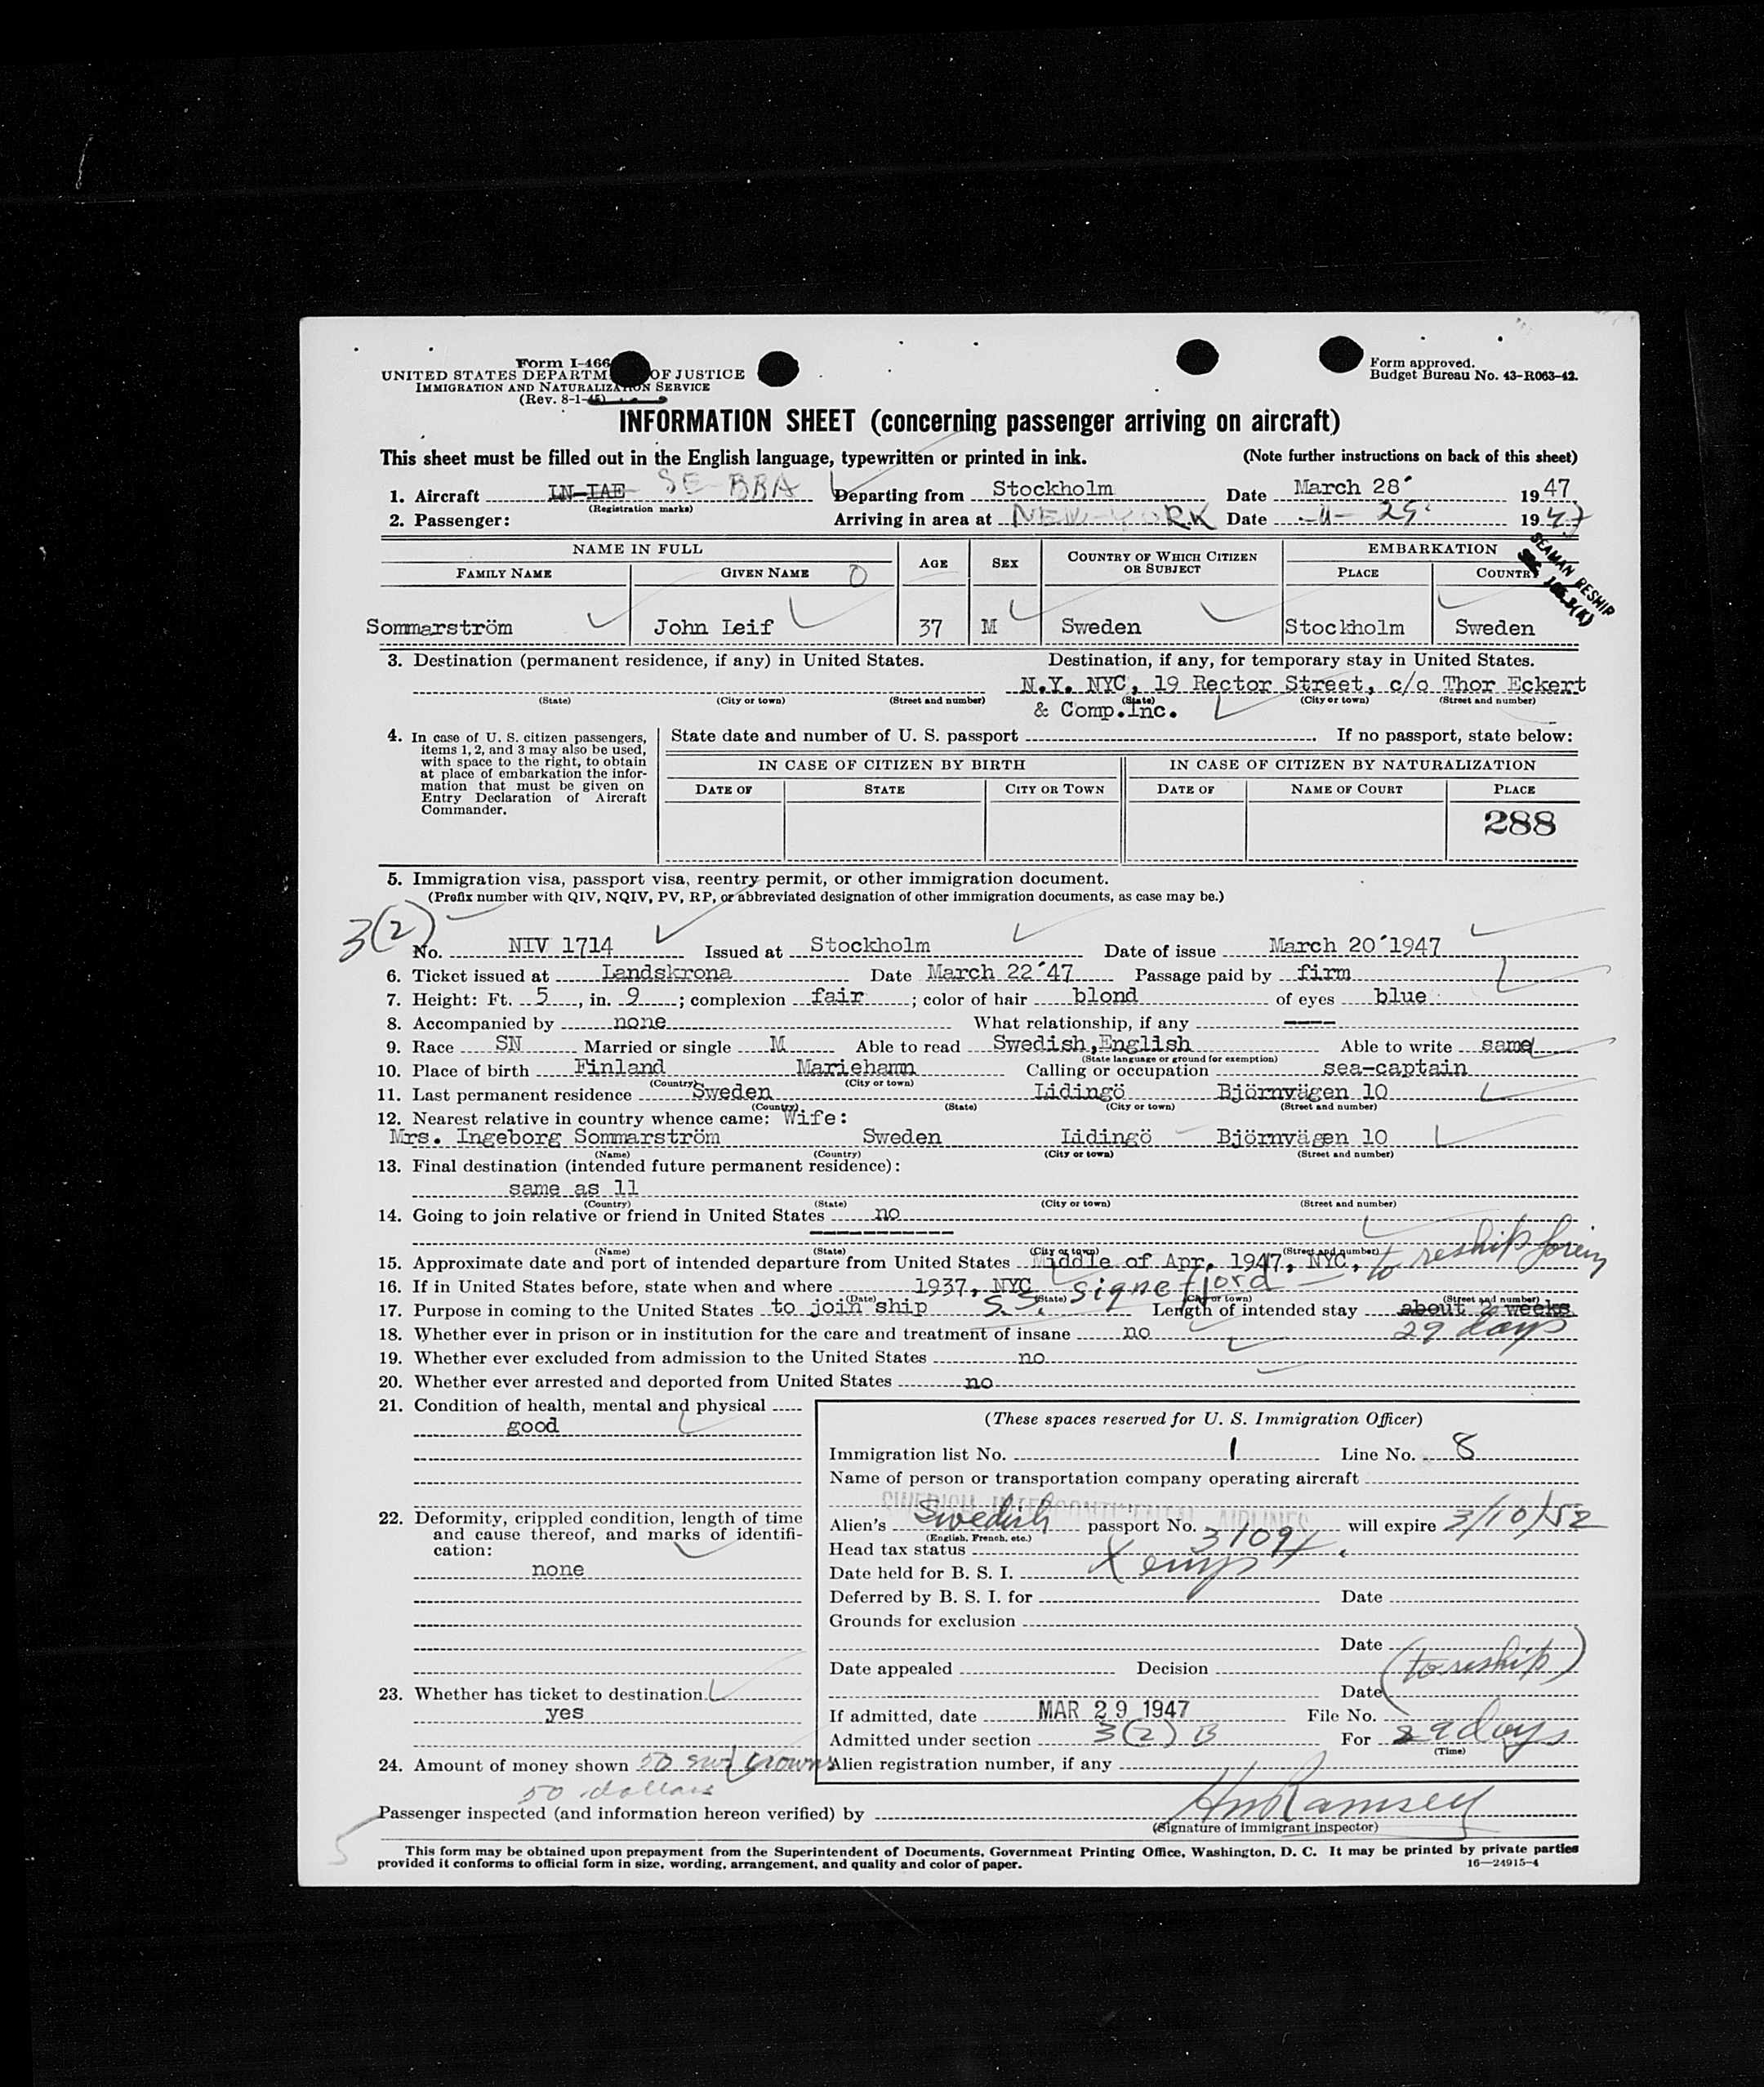 Form I-466
UNITED STATES DEPARTM OF JUSTICE
IMMIGRATION AND NATURALIZATION SERVICE
(Rev. 8-1-45)
Form approved.
Budget Bureau No. 43-R063-42.
INFORMATION SHEET (concerning passenger arriving on aircraft)
This sheet must be filled out in the English language, typewritten or printed in ink. (Note further instructions on back of this sheet)
1. Aircraft LN-IAE SE-BBA Departing from Stockholm Date March 28 1947
(Registration marks)
2. Passenger: Arriving in area at NEW-YORK Date -"- 29. 1947
SEAMAN RESHIP
NAME IN FULL AGE SEX COUNTRY OF WHICH CITIZEN OR SUBJECT EMBARKATION
FAMILY NAME GIVEN NAME PLACE COUNTRY
Sommarström John Leif 37 M Sweden Stockholm Sweden
3. Destination (permanent residence, if any) in United States. Destination, if any, for temporary stay in United States.
N.Y. NYC, 19 Rector Street, c/o Thor Eckert
(State) (City or town) (Street and number) (State) (City or town) (Street and number)
& Comp.Inc.
4. In case of U. S. citizen passengers, items 1, 2, and 3 may also be used, with space to the right, to obtain at place of embarkation the information that must be given on Entry Declaration of Aircraft Commander.
State date and number of U. S. passport If no passport, state below:
IN CASE OF CITIZEN BY BIRTH IN CASE OF CITIZEN BY NATURALIZATION
DATE OF STATE CITY OR TOWN DATE OF NAME OF COURT PLACE
288
5. Immigration visa, passport visa, reentry permit, or other immigration document.
(Prefix number with QIV, NQIV, PV, RP, or abbreviated designation of other immigration documents, as case may be.)
3(2)
No. NIV 1714 Issued at Stockholm Date of issue March 20 1947
6. Ticket issued at Landskrona Date March 22 47 Passage paid by firm
7. Height: Ft. 5, in. 9; complexion fair; color of hair blond of eyes blue
8. Accompanied by none What relationship, if any ----
9. Race SN Married or single M Able to read Swedish,English Able to write same
(State language or ground for exemption)
10. Place of birth Finland Mariehamn Calling or occupation sea-captain
(Country) (City or town)
11. Last permanent residence Sweden Lidingö Björnvägen 10
(Country) (State) (City or town) (Street and number)
12. Nearest relative in country whence came: Wife:
Mrs. Ingeborg Sommarström Sweden Lidingö Björnvägen 10
(Name) (Country) (City or town) (Street and number)
13. Final destination (intended future permanent residence):
same as 11
(Country) (State) (City or town) (Street and number)
14. Going to join relative or friend in United States no
(Name) (State) (City or town) (Street and number)
15. Approximate date and port of intended departure from United States Middle of Apr. 1947, NYC, to reship foreign
16. If in United States before, state when and where 1937, NYC
(Date) (State) (City or town) (Street and number)
17. Purpose in coming to the United States to join ship S.S. Signefjord Length of intended stay about 2 weeks
29 days
18. Whether ever in prison or in institution for the care and treatment of insane no
19. Whether ever excluded from admission to the United States no
20. Whether ever arrested and deported from United States no
21. Condition of health, mental and physical
good
22. Deformity, crippled condition, length of time and cause thereof, and marks of identification:
none
23. Whether has ticket to destination
yes
24. Amount of money shown 50 swd crowns
50 dollars
(These spaces reserved for U. S. Immigration Officer)
Immigration list No. 1 Line No. 8
Name of person or transportation company operating aircraft
SWEDISH INTERCONTINENTAL AIRLINES
Alien's Swedish passport No. will expire 3/10/52
(English, French, etc.)
Head tax status
Date held for B. S. I.
Deferred by B. S. I. for Date
Grounds for exclusion
Date
Date appealed Decision (to reship)
Date
If admitted, date MAR 29 1947 File No.
Admitted under section 3(2) B For 29 days
(Time)
Alien registration number, if any
Passenger inspected (and information hereon verified) by Ramsey
(Signature of immigrant inspector)
This form may be obtained upon prepayment from the Superintendent of Documents, Government Printing Office, Washington, D. C. It may be printed by private parties
provided it conforms to official form in size, wording, arrangement, and quality and color of paper. 16—24915-4